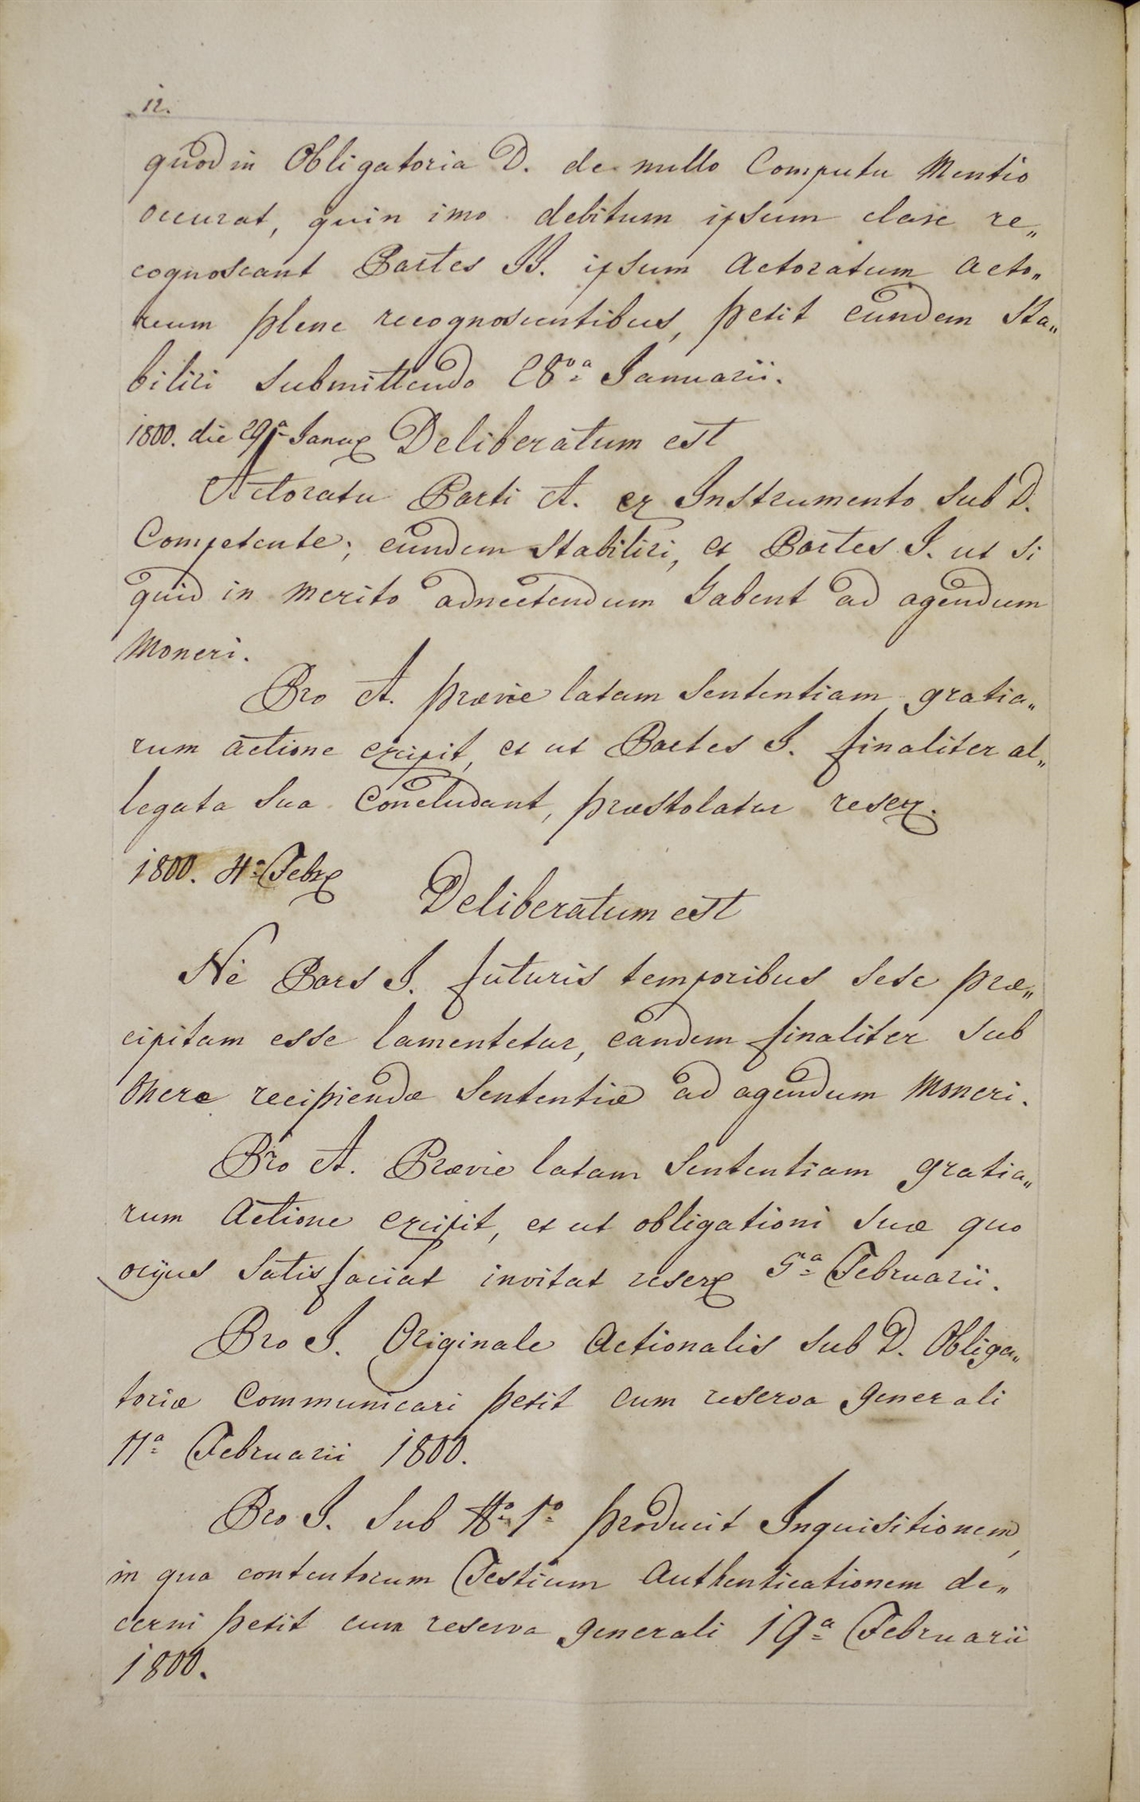 12.
quod in Obligatoria D. de nullo Computu Mentio
occurat, quin imo debitum ipsum clare re„
cognoscant Partes II. ipsum Actoratum Acto„
reum plene recognoscentibus, petit eundem Sta„
biliri submittendo 28ª Januarii.
1800. die 29ª Janu Deliberatum est
Actoratu Parti A. ex Instrumento sub D.
Competente; eundem Stabiliri, et Partes I. ut si
quid in merito adnectendum habent ad agendum
Moneri.
Pro A. prævie latam Sententiam gratia„
rum actione excipit, et ut Partes I. finaliter al„
legata sua Concludant, præstolatur reser.
1800. 4ª Febr
Deliberatum est
Nè Pars I. futuris temporibus sese præ„
cipitam esse lamentetur, eandem finaliter sub
Onere recipiendæ Sententiæ ad agendum Moneri.
Pro A. Prævie latam Sententiam gratia„
rum Actione excipit, et ut obligationi suæ quo
ocyus Satisfaciat invitat reser 5ª Februarii.
Pro I. Originale Actionalis sub D. Obliga„
toriæ Communicari petit cum reserva generali
11ª Februarii 1800.
Pro I. sub Nº 1º producit Inquisitionem,
in qua contentorum Testium Authenticationem de„
cerni petit cum reserva generali 19ª Februarii
1800.